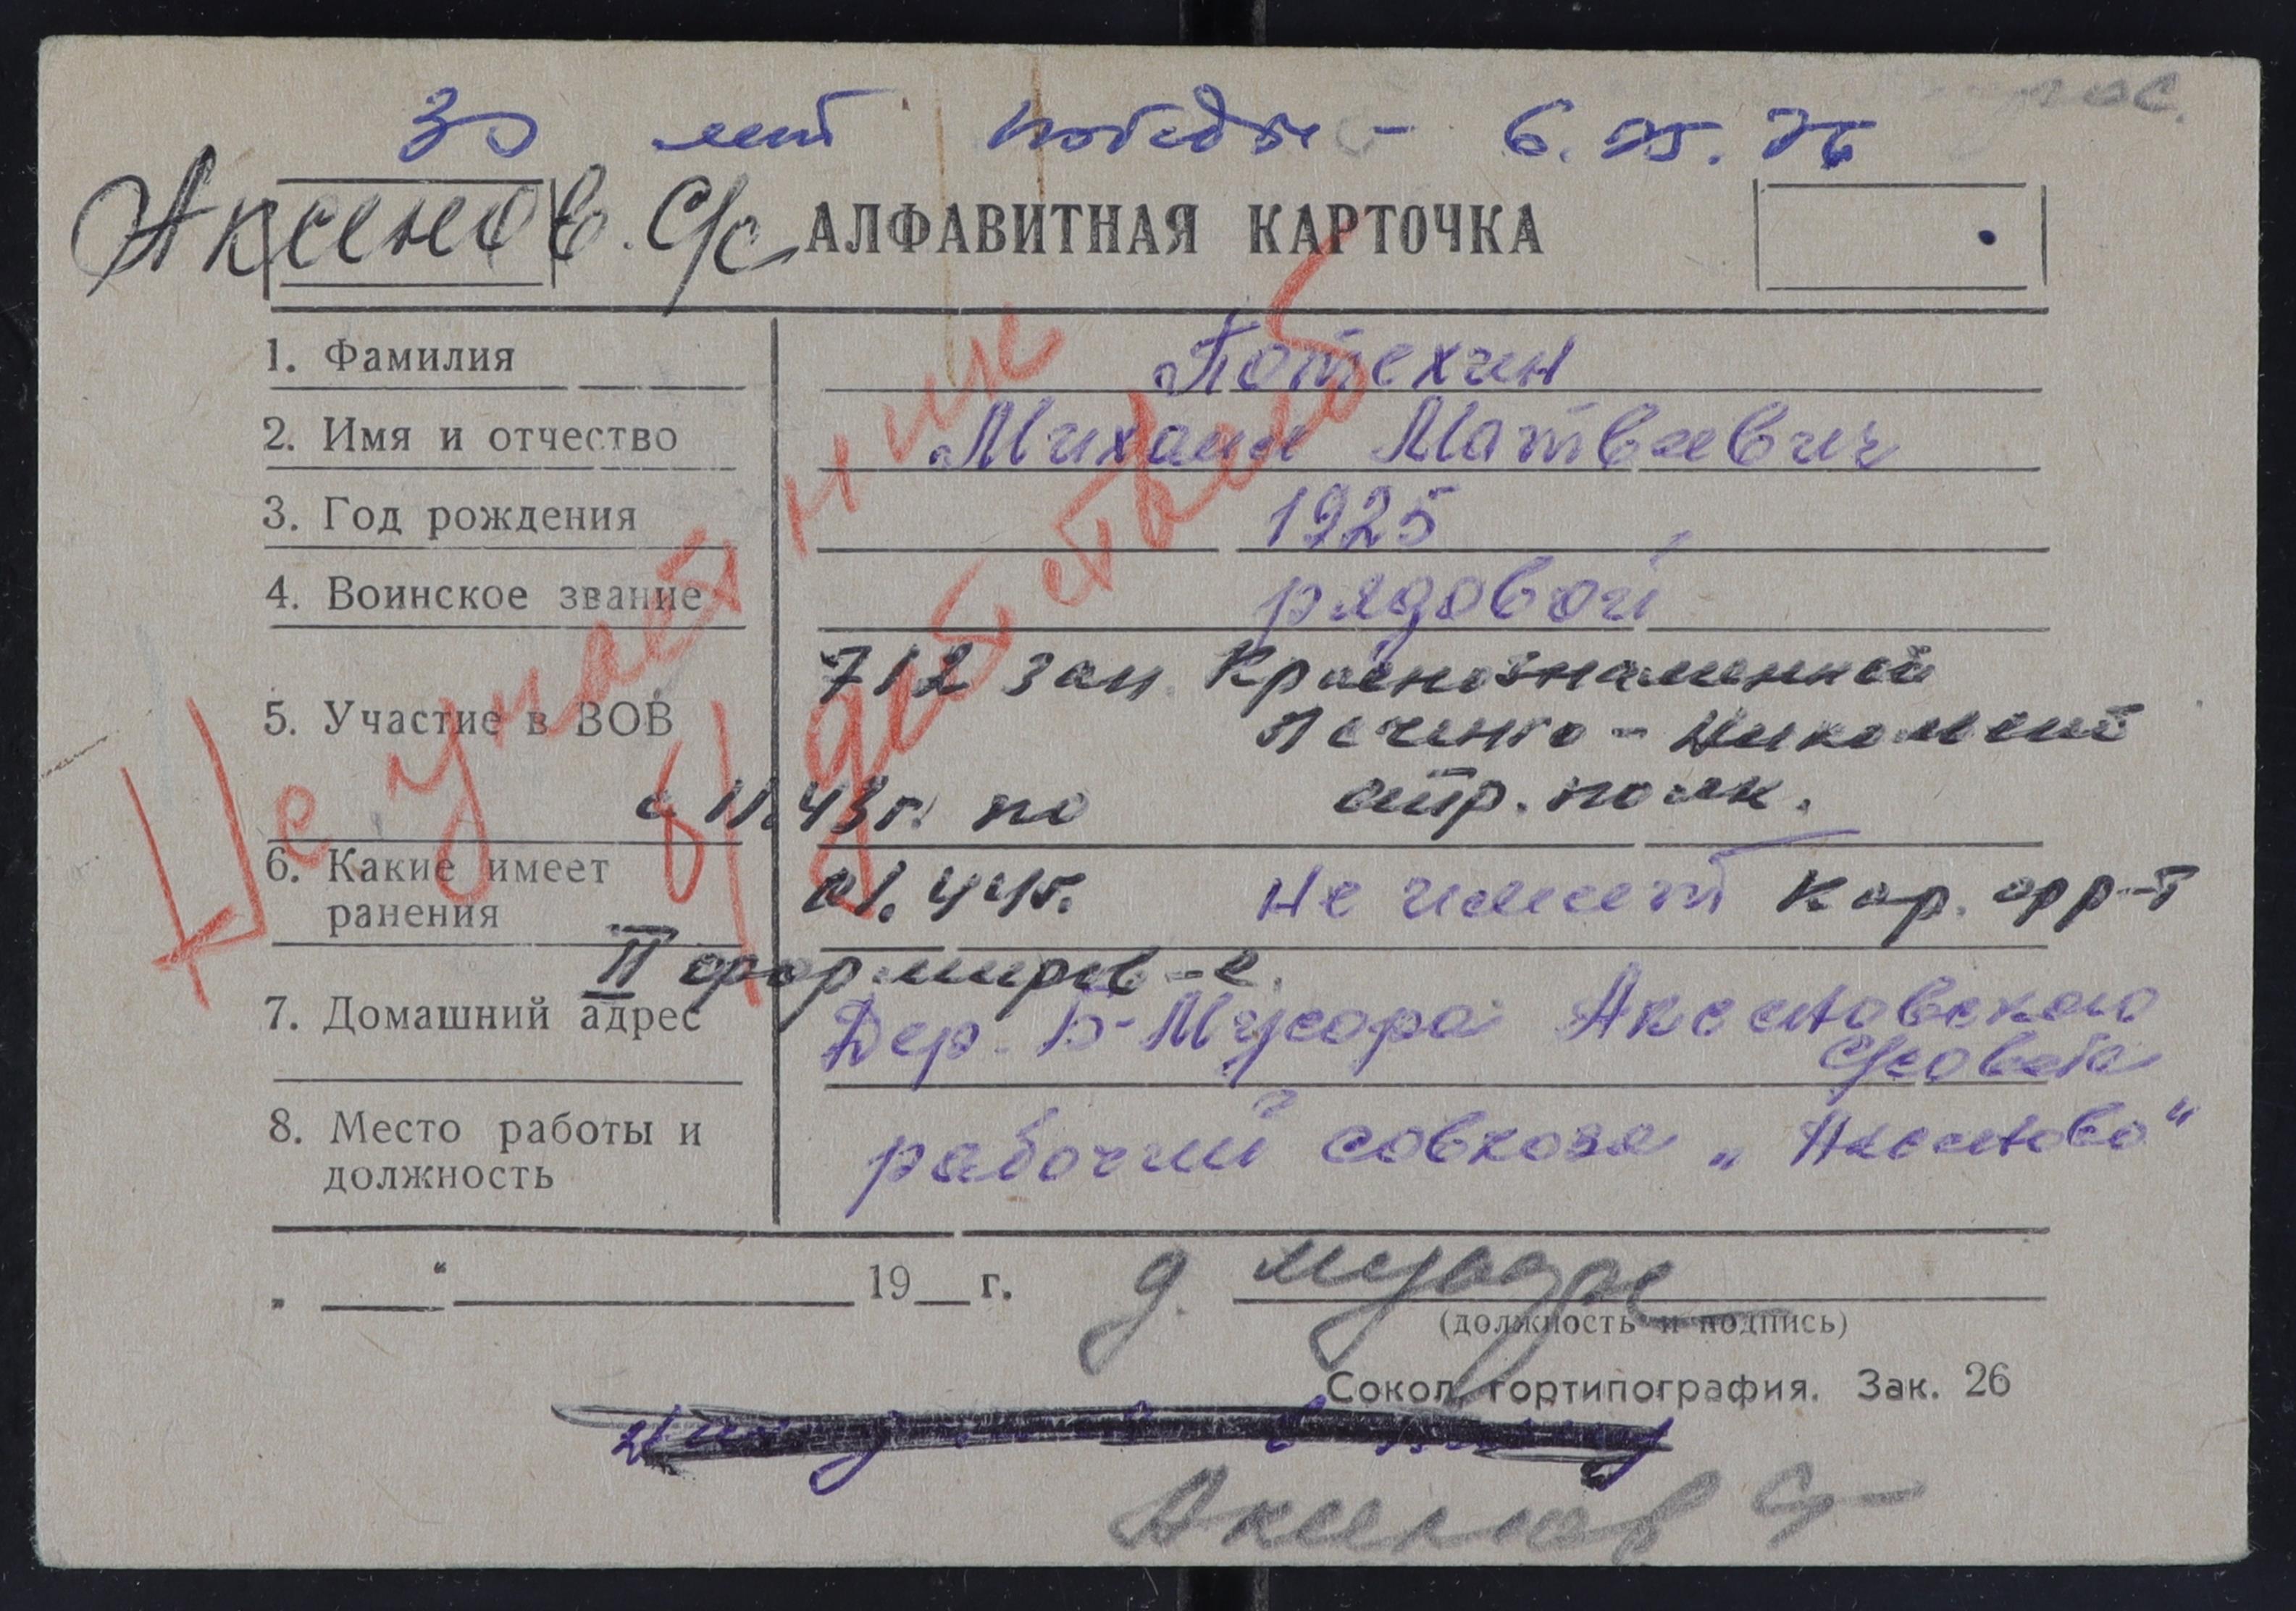 30 лет победы - 6.05.76
Аксенов. С/с АЛФАВИТНАЯ КАРТОЧКА
1. Фамилия Потехин
2. Имя и отчество Михаил Матвеевич
3. Год рождения 1925
4. Воинское звание рядовой
712 зап. Краснознаменный
5. Участие в ВОВ Печенго-
с 11.43г. по стр. полк.
6. Какие имеет ранения 01.44г. не имеет Кар. фр-т
II формиров-е.
7. Домашний адрес Дер. Б-Мусора Аксеновского
с/совета
8. Место работы и должность рабочий совхоза „Аксеново“
Не участник
„ ___ “ ______ 19__ г. д.
(должность и подпись)
Сокол, гортипография. Зак. 26
Аксенов